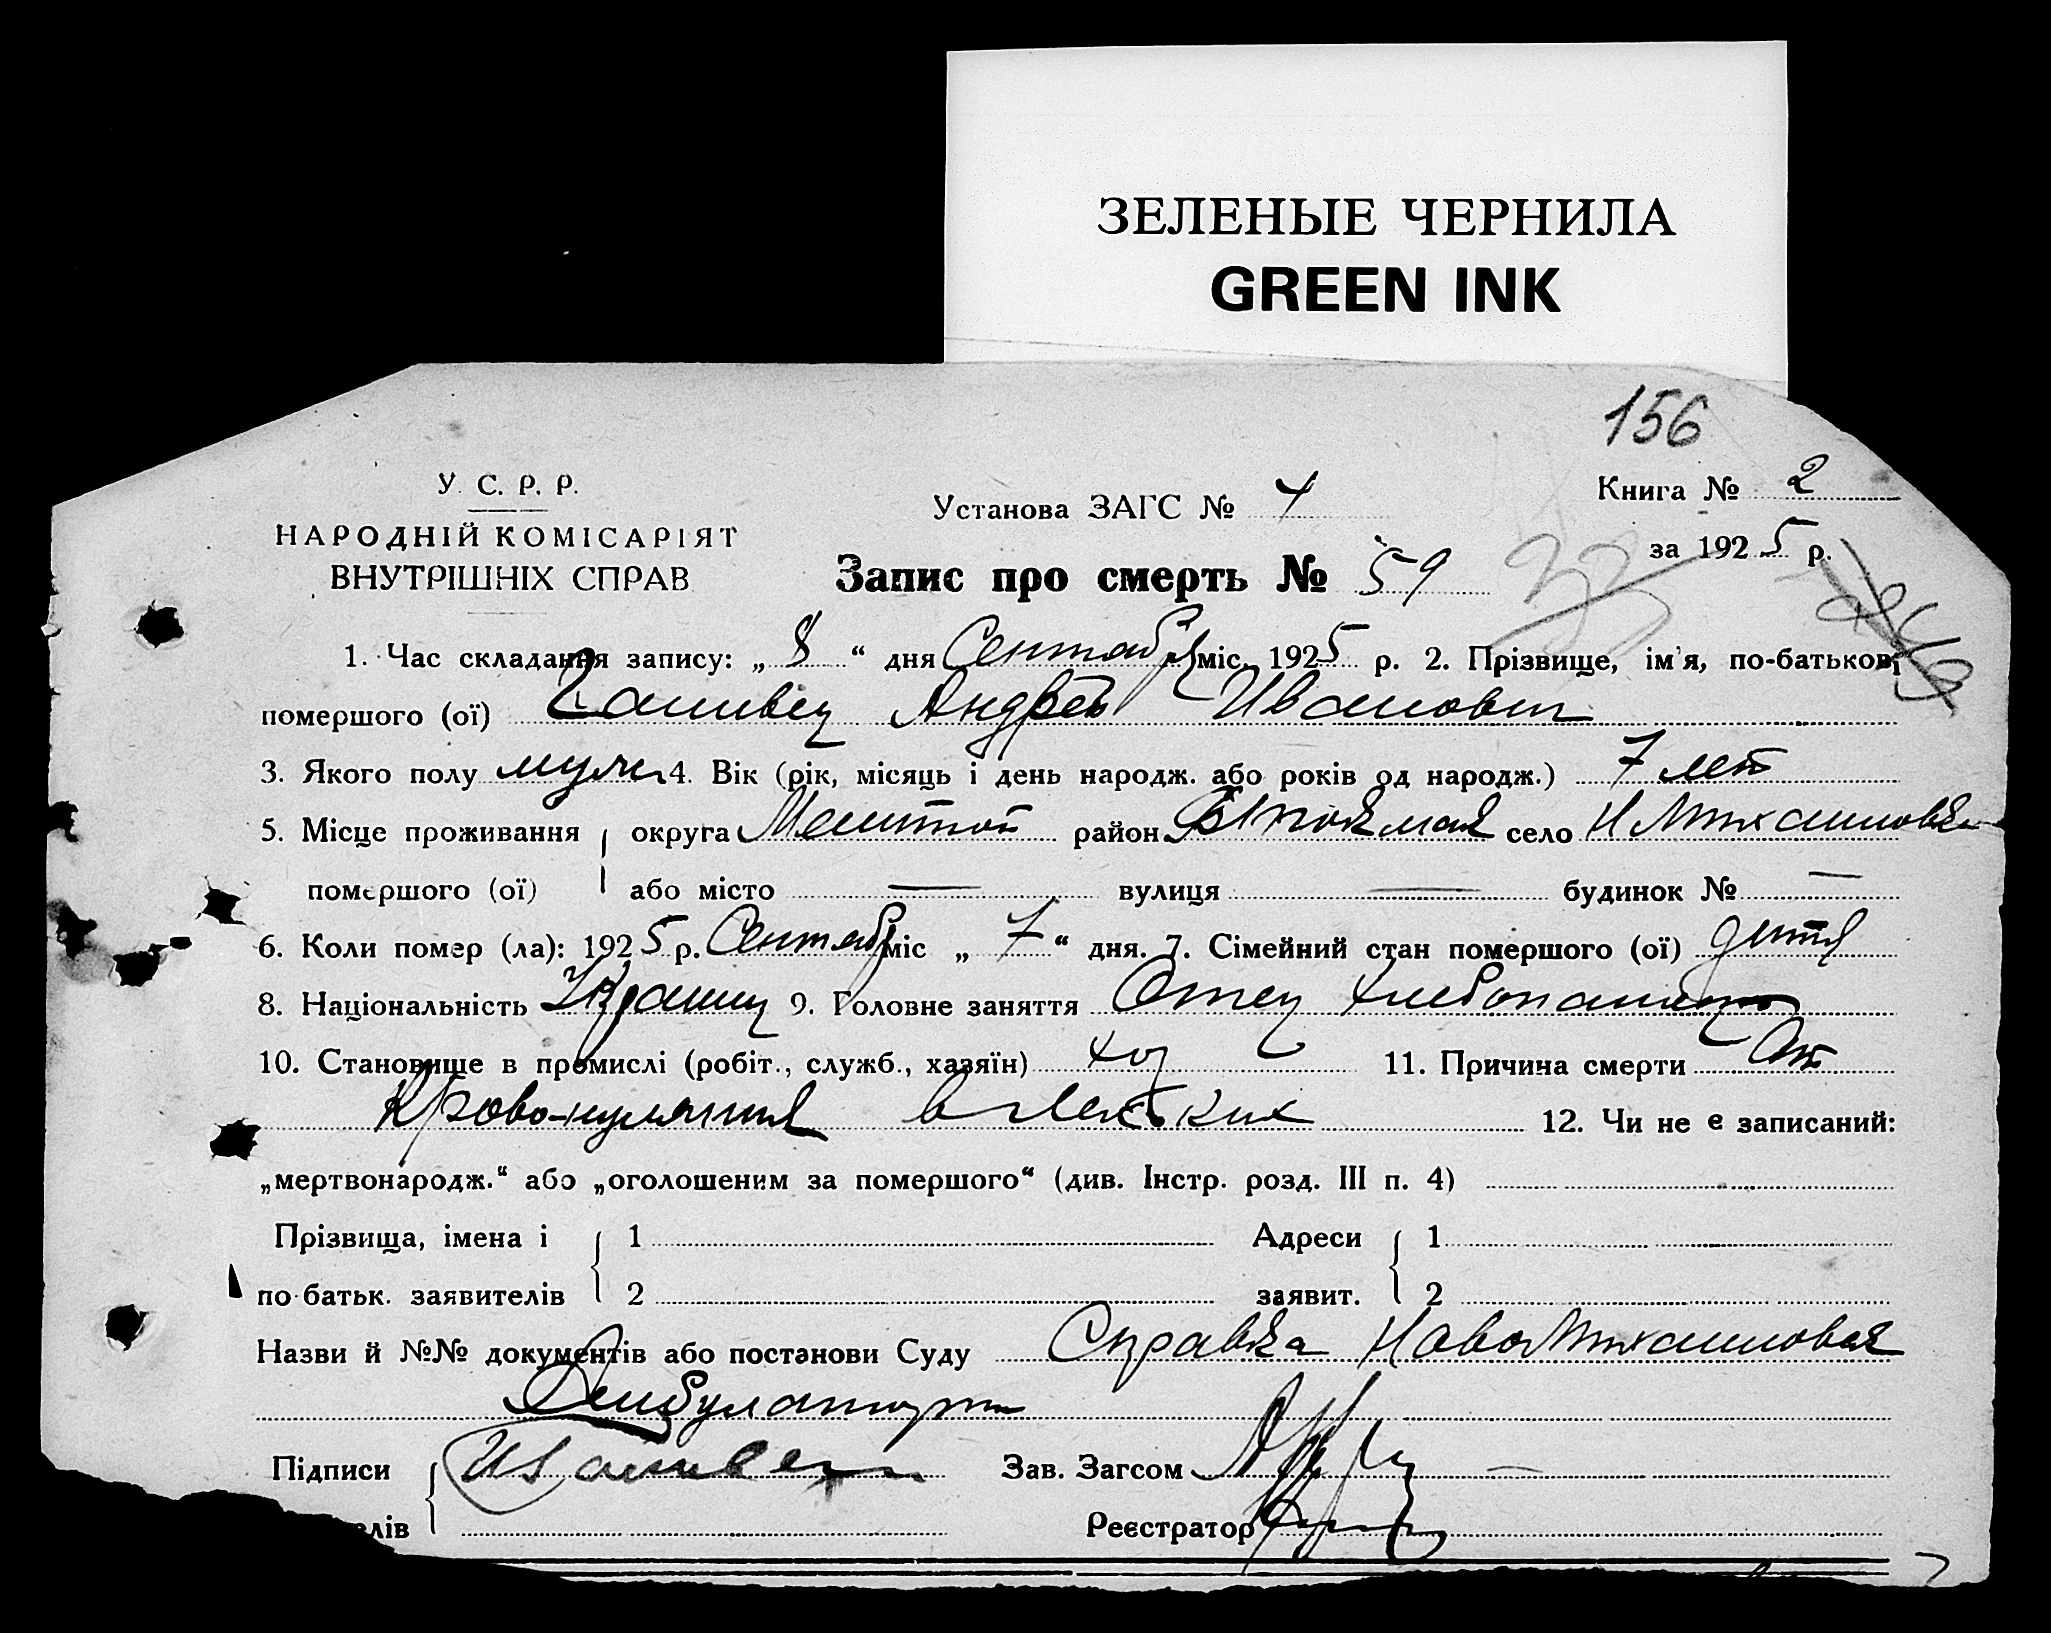 ЗЕЛЕНЫЕ ЧЕРНИЛА
GREEN INK
156
У. С. Р. Р.
НАРОДНІЙ КОМІСАРІЯТ
ВНУТРІШНІХ СПРАВ
Установа ЗАГС № 4
Книга № 2
за 1925 р.
Запис про смерть № 59
1. Час складання запису: „ 8 “ дня Сентября міс. 1925 р. 2. Прізвище, ім'я, по-батькові
помершого (ої) Андрей Иванович
3. Якого полу муж 4. Вік (рік, місяць і день народж. або років од народж.) 7 лет
5. Місце проживання округа район село Н Михайловка
помершого (ої) або місто — вулиця — будинок № —
6. Коли помер (ла): 1925 р. Сентябр міс „ 7 “ дня. 7. Сімейний стан помершого (ої) дитя
8. Національність Украинц 9. Головне заняття Отец хлебопашец
10. Становище в промислі (робіт., служб., хазяїн) хоз 11. Причина смерти От
Крово-излияния в легких 12. Чи не є записаний:
„мертвонародж.“ або „оголошеним за помершого“ (див. Інстр. розд. III п. 4)
Прізвища, імена і 1 Адреси 1
по-батьк. заявителів 2 заявит. 2
Назви й №№ документів або постанови Суду Справка НовоМихайловск
Амбулатории
Підписи Зав. Загсом
елів Реєстратор